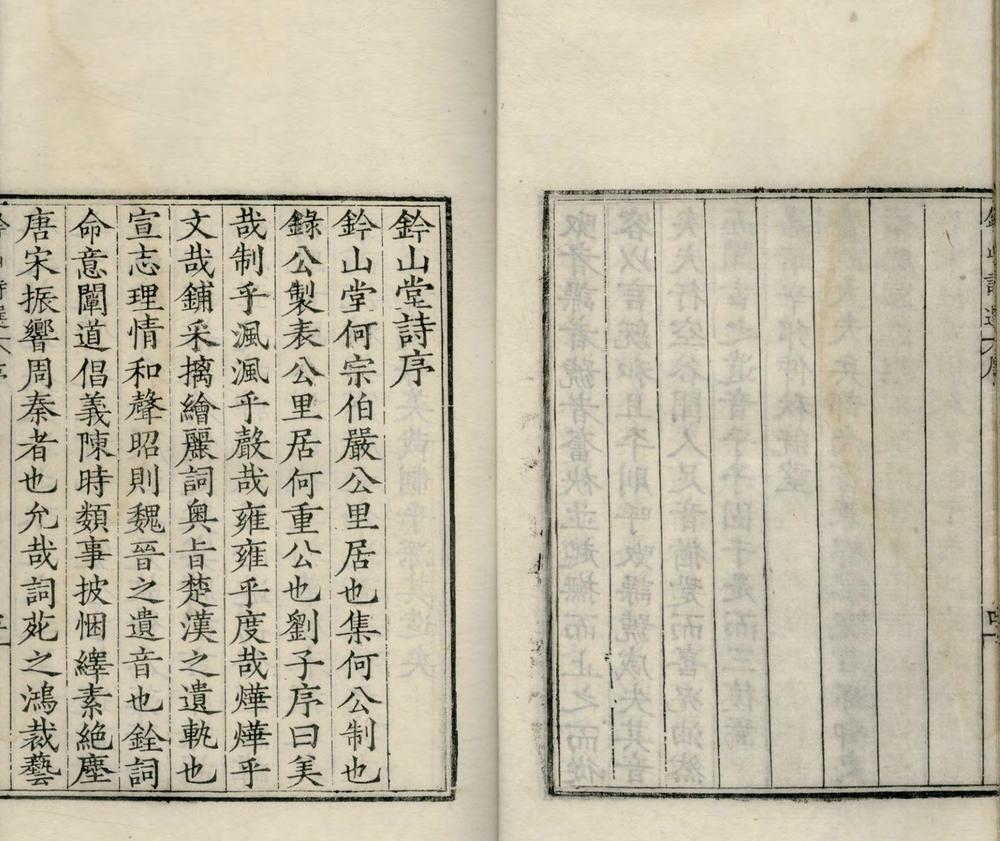 鈐山堂詩序
鈐山堂何宗伯嚴公里居也集何公制也
錄公製表公里居何重公也劉子序曰美
哉制乎渢渢乎殸哉雍雍乎度哉燁燁乎
文哉鋪采摛繪麗詞奧旨楚漢之遺軌也
宣志理情和聲昭則魏晉之遺音也銓詞
命意闡道倡義陳時類事披悃繹素絶塵
唐宋振響周秦者也允哉詞苑之鴻裁藝